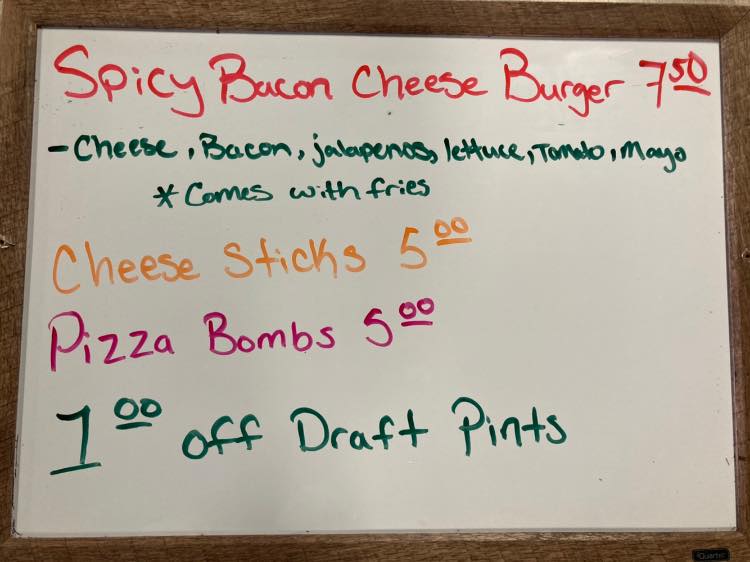 Spicy Bacon Cheese Burger 7 50
- Cheese, Bacon, jalapenos, lettuce, Tomato, Mayo
* Comes with fries
Cheese Sticks 5 00
Pizza Bombs 5 00
1 00 off Draft Pints
Quartet